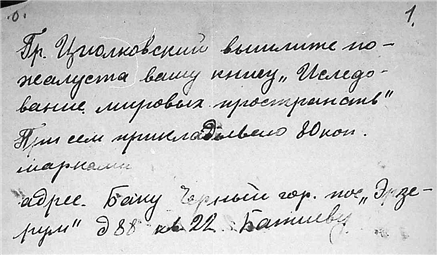 о. 1.
Пр. Циолковский вышлите по-
жалуста вашу книгу „Иследо-
вание мировых пространств"
При сем прикладываю 80 коп.
марками
адрес. Баку Черный гор. пос „Эрзе-
рум" д 88 кв 22. Багиеву